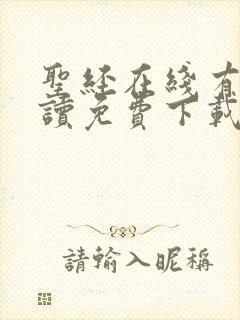 聖經在綫有
讀免費下載
請輸入昵稱